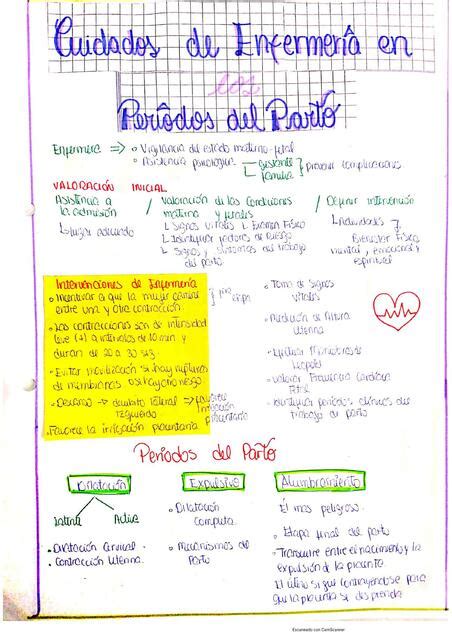 Cuidados de Enfermería en
los
Periódos del Parto
Enfermera => • Vigilancia del estado materno-fetal
• Asistencia psicológica Gestante Familia } prevenir complicaciones.
VALORACIÓN INICIAL
Asistencia a la admisión
↳ lugar adecuado
/ Valoración de las Condiciones
materna y fetales
↳ Signos vitales ↳ Examen Físico
↳ Identificar factores de riesgo
↳ Signos y síntomas del trabajo
del parto
/ Definir intervención
↳ Necesidades
Bienestar Físico
mental, emocional y
espiritual
Intervenciones de Enfermería
a que la mujer camine
entre una y otra contracción.
• Las contracciones son de intensidad
leve (+) a intervalos de 10 min y
duran de 20 a 30 seg.
• Evitar movilización si hay ruptura
de membranas o si hay otro riesgo.
• Descanso → decúbito lateral → favorece
izquierdo irrigación
placentaria
• Favorece la irrigación placentaria.
• Toma de Signos
vitales
• Medición de Altura
Uterina
• Efectuar Maniobras de
Leopold
• Valorar Frecuencia Cardiaca
Fetal
• Identificar periodos clínicos del
trabajo de parto
Periodos del Parto
Dilatación
Latente Activa
• Dilatación Cervical.
• Contracción Uterina.
Expulsivo
• Dilatación
Completa.
• Mecanismos del
Parto
Alumbramiento
El mas peligroso.
• Etapa final del parto
• Transcurre entre el nacimiento y la
expulsión de la placenta.
El útero sigue contrayéndose para
que la placenta se desprenda
Escaneado con CamScanner